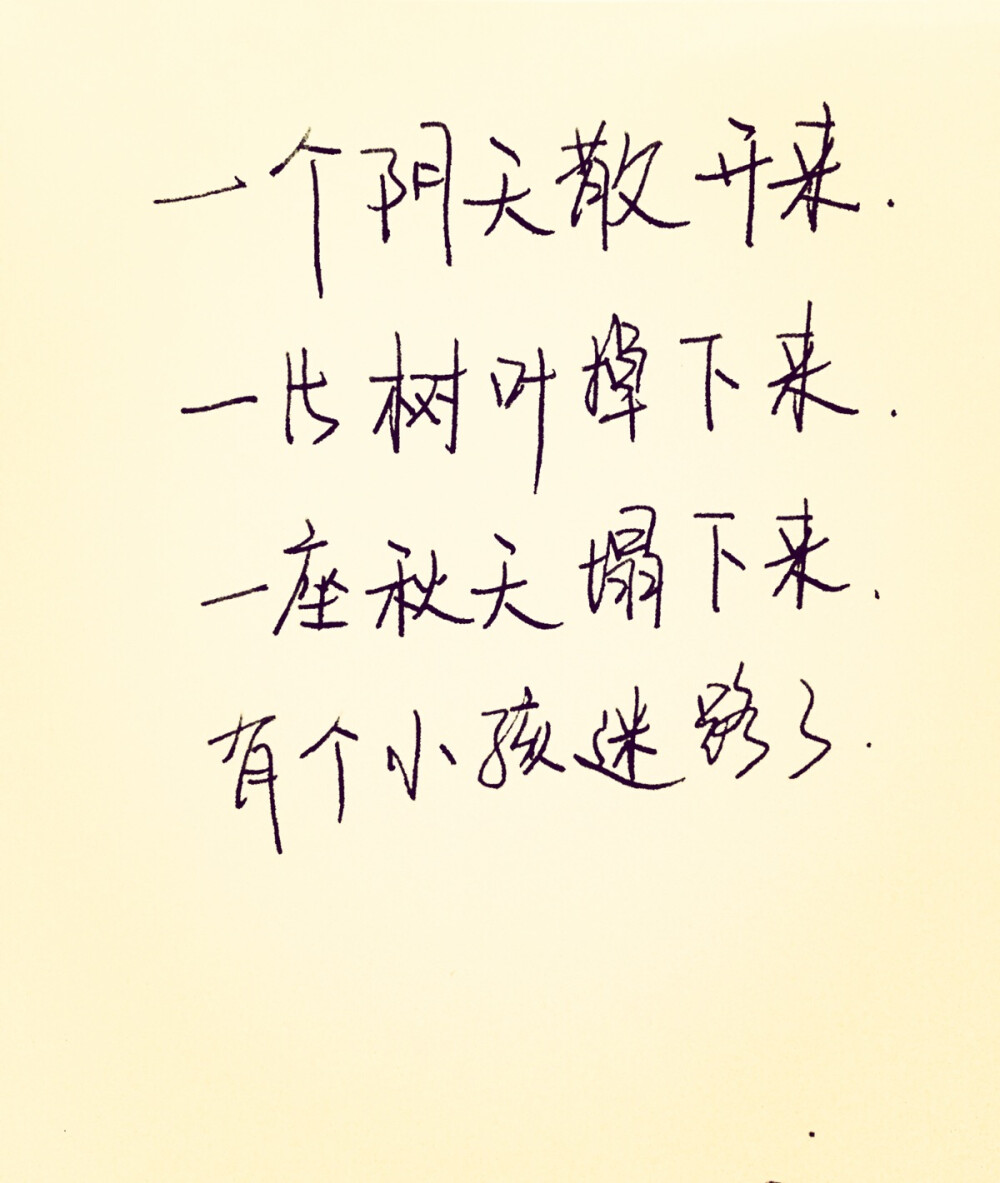 一个阴天散开来.
一片树叶掉下来.
一座秋天塌下来.
有个小孩迷路了.